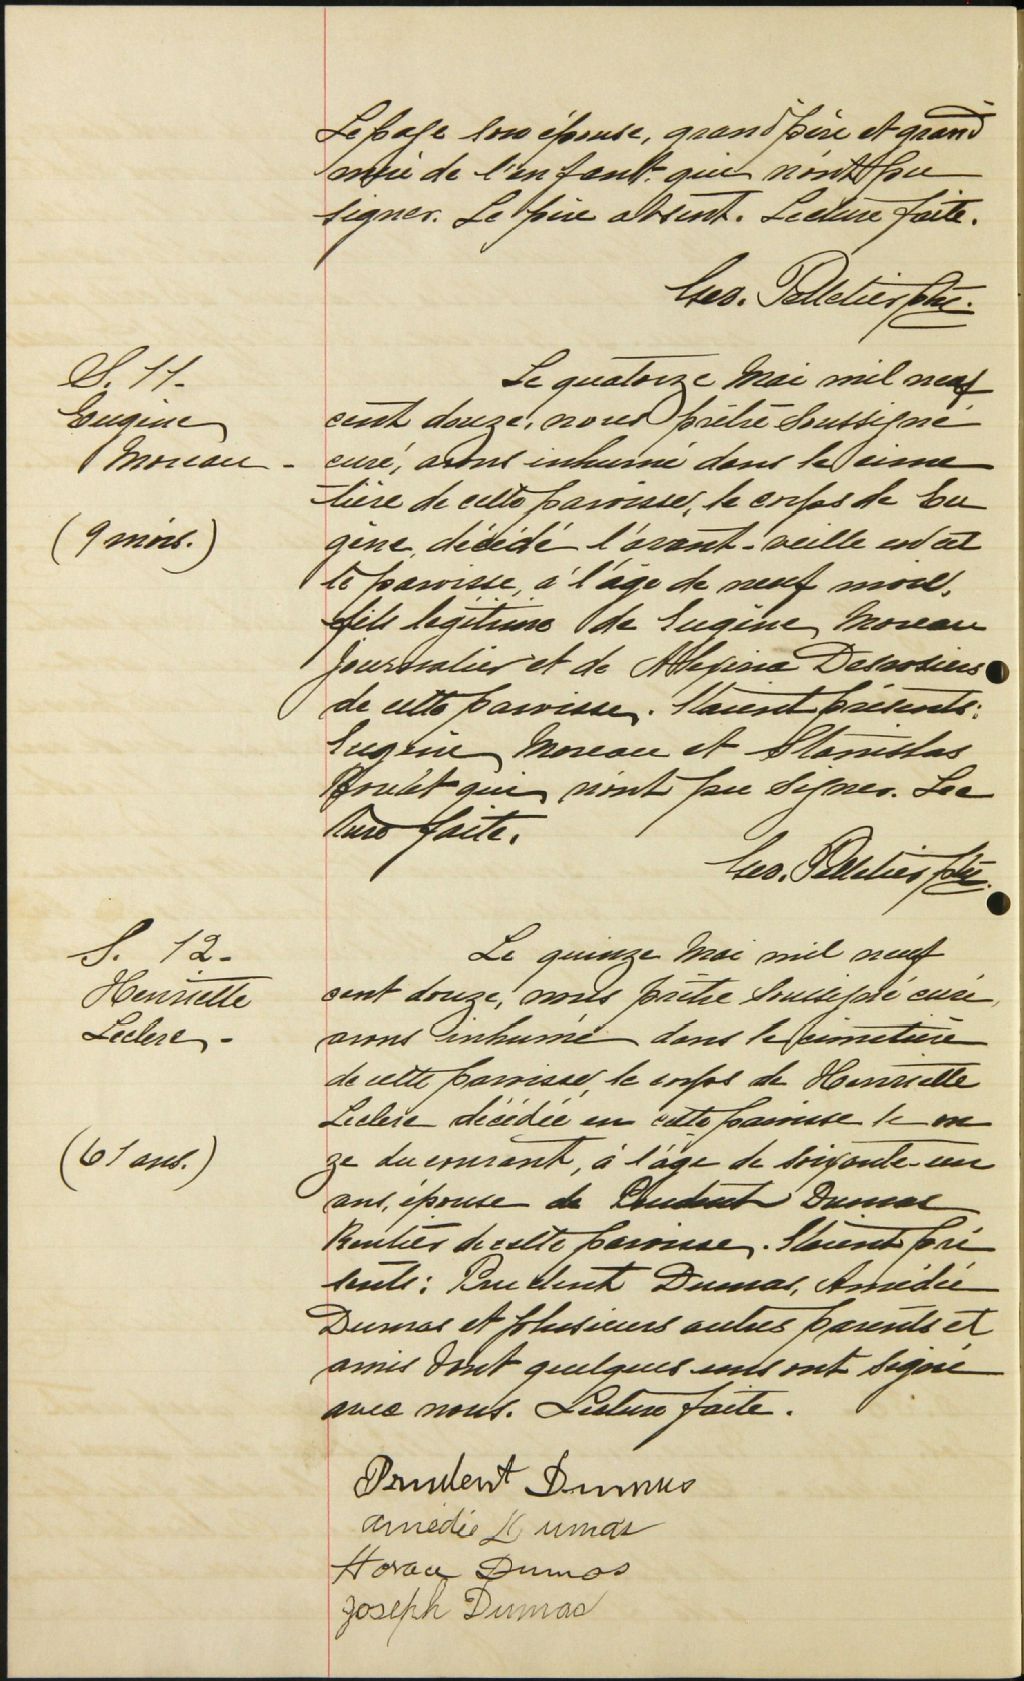 Lepage son épouse, grand père et grand
mère de l'enfant qui n'ont pu
signer. Le père absent. Lecture faite.
Geo. Pelletier ptre.
S. 11-
Eugène
Moreau -
(9 mois.)
Le quatorze Mai mil neuf
cent douze, nous prêtre soussigné
curé, avons inhumé dans le cime
tière de cette paroisse, le corps de Eu
gène, décédé l'avant-veille en cet
te paroisse, à l'âge de neuf mois,
fils légitime de Eugène Moreau
journalier et de Alexina Desrosiers
de cette paroisse. Étaient présents:
Eugène Moreau et Stanislas
qui n'ont pu signer. Lec
ture faite.
Geo. Pelletier ptre.
S. 12-
Henriette
Leclerc -
(61 ans.)
Le quinze Mai mil neuf
cent douze, nous prêtre soussigné curé,
avons inhumé dans le cimetière
de cette paroisse, le corps de Henriette
Leclerc décédée en cette paroisse le on
ze du courant, à l'âge de soixante-un
ans, épouse de Prudent Dumas
Rentier de cette paroisse. Étaient pré
sents: Prudent Dumas, Amédée
Dumas et plusieurs autres parents et
amis dont quelques uns ont signé
avec nous. Lecture faite.
Prudent Dumas
Amédée Dumas
Horace Dumas
Joseph Dumas